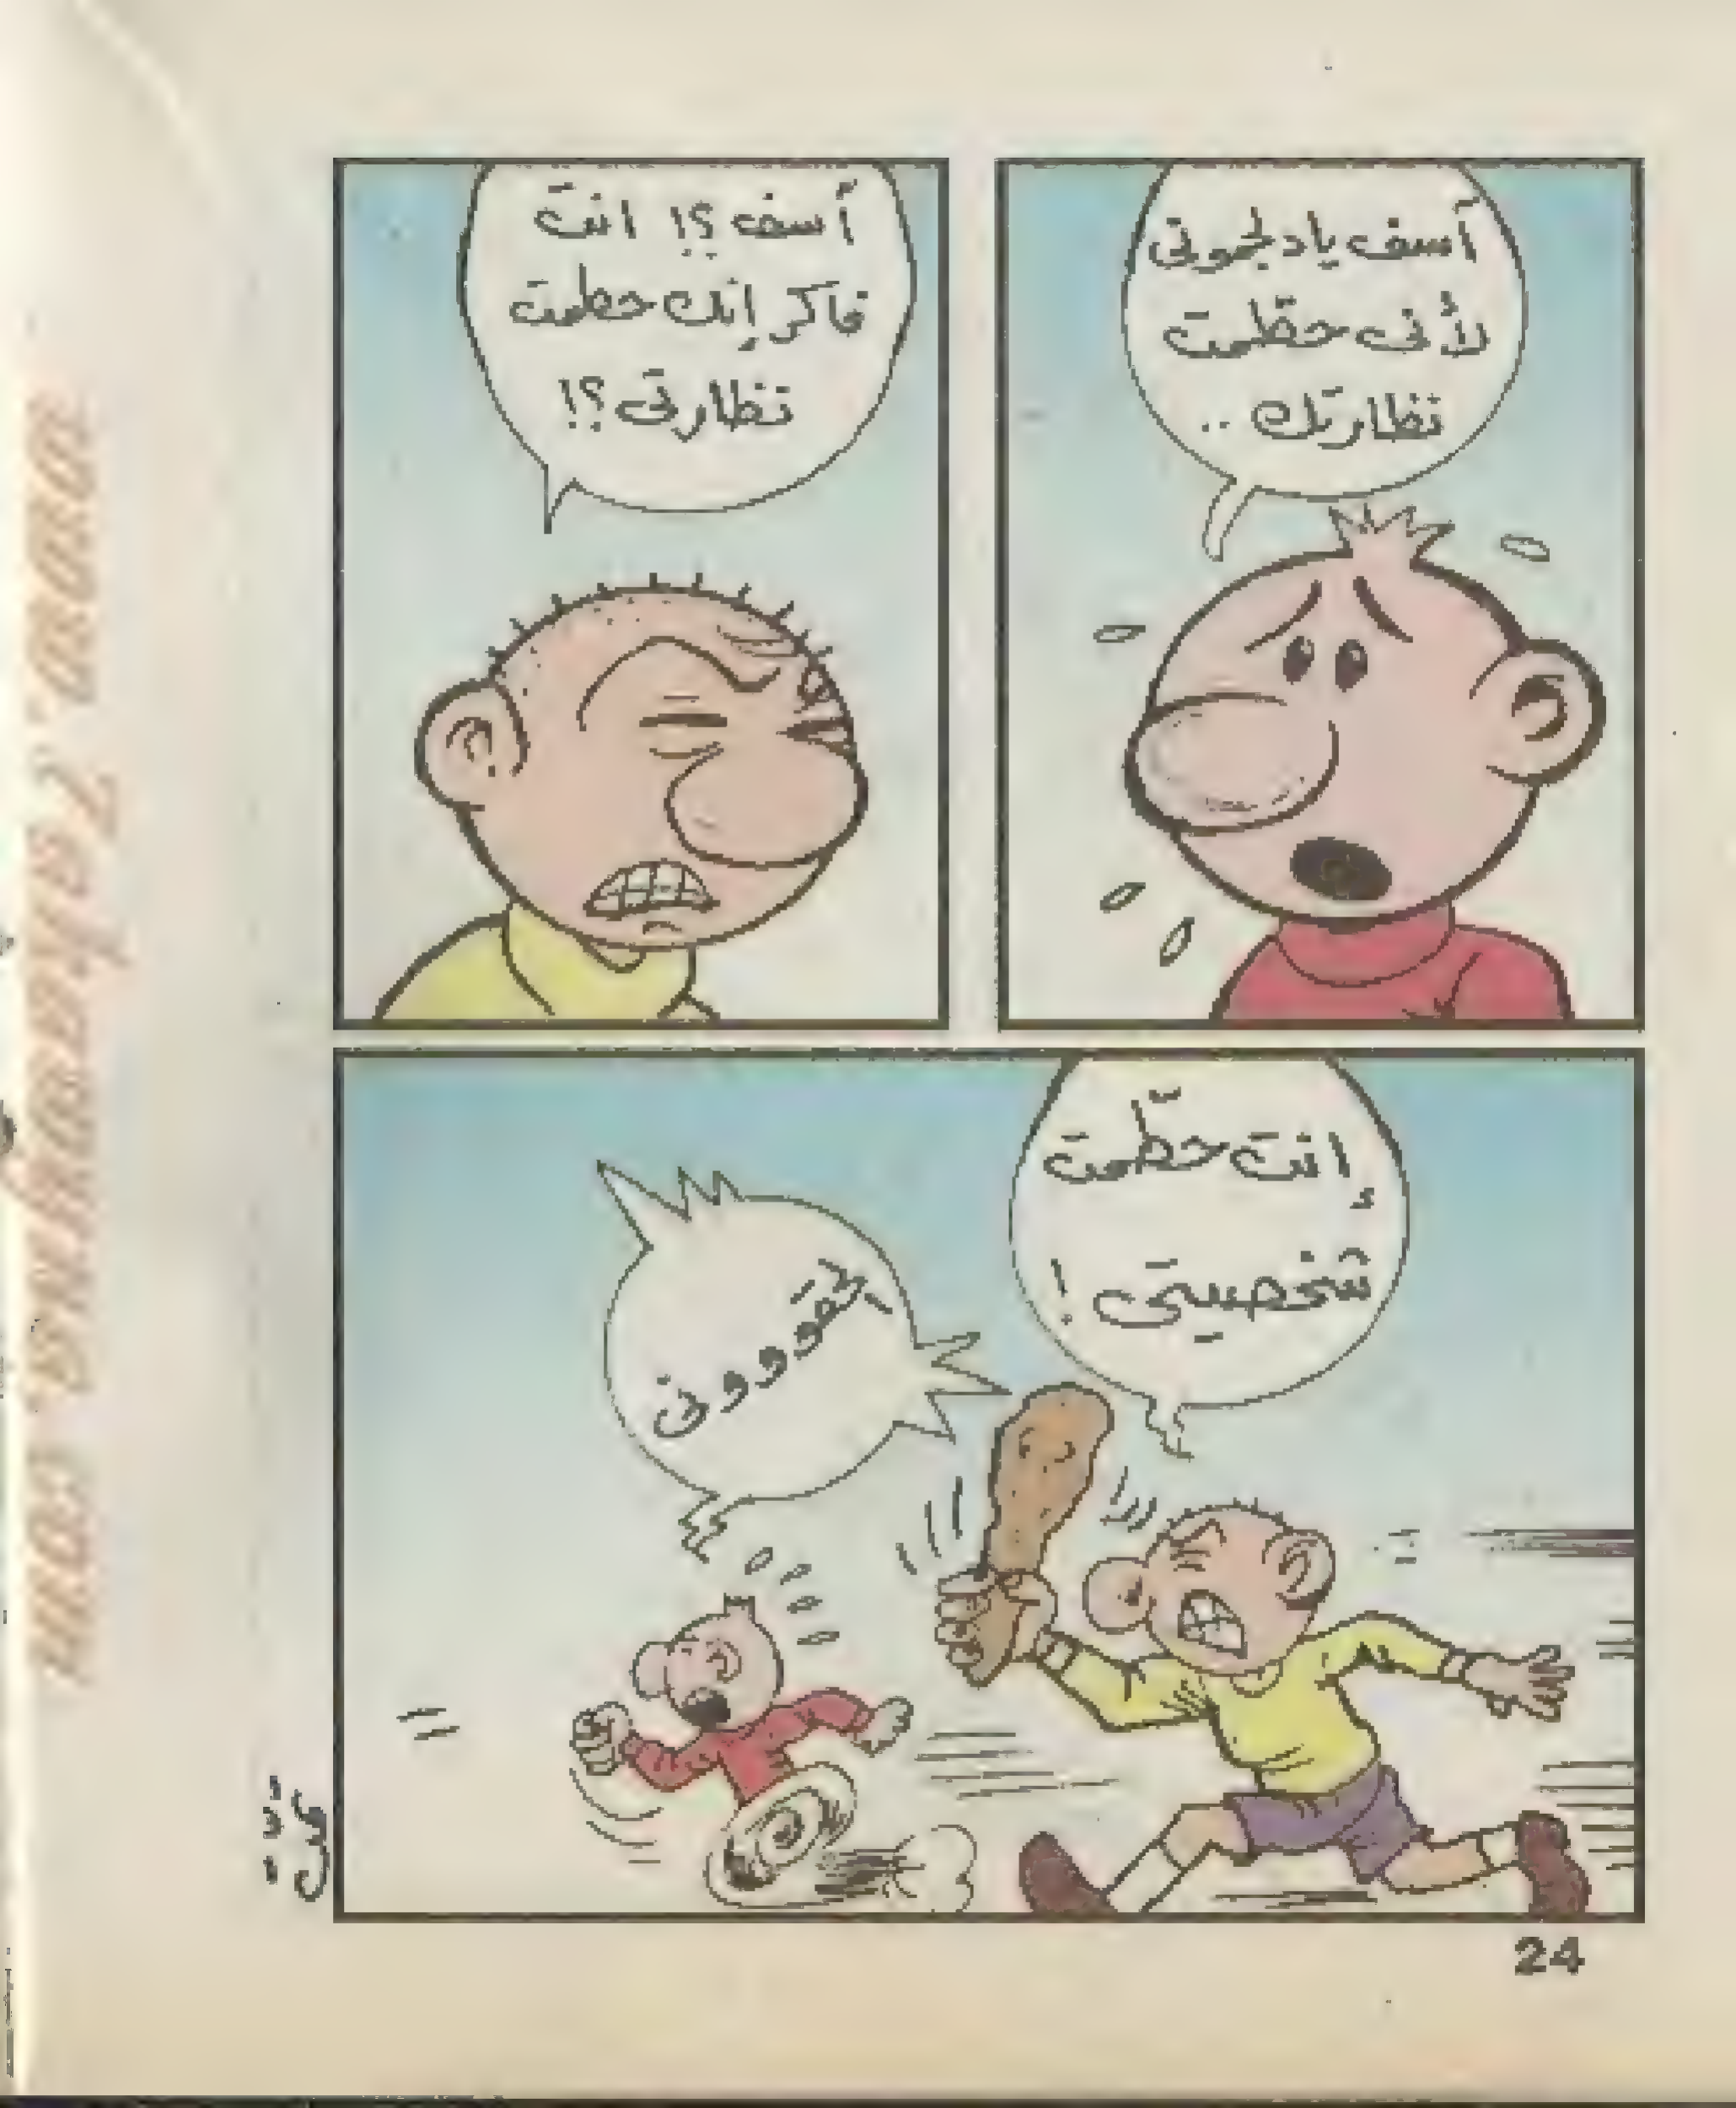 آسف يا دلجموتى
لأنى حطّمت
نظارتك ..
آسف ؟! انت
فاكر إنك حطمت
نظارتى ؟!
إنت حطّمت
شخصيتى !
إلحقوووونى
24